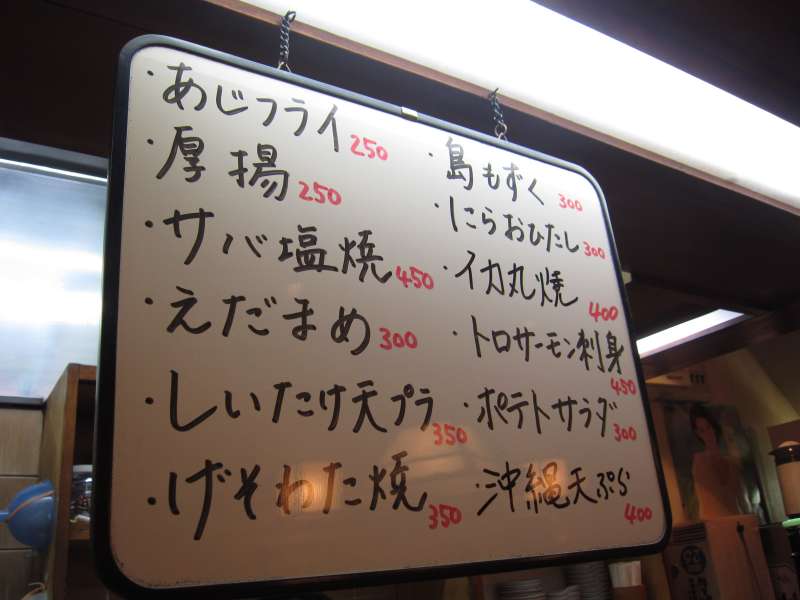 ・あじフライ 250
・厚揚 250
・サバ塩焼 450
・えだまめ 300
・しいたけ天プラ 350
・げそわた焼 350
・島もずく 300
・にらおひたし 300
・イカ丸焼 400
・トロサーモン刺身 450
・ポテトサラダ 300
・沖縄天ぷら 400